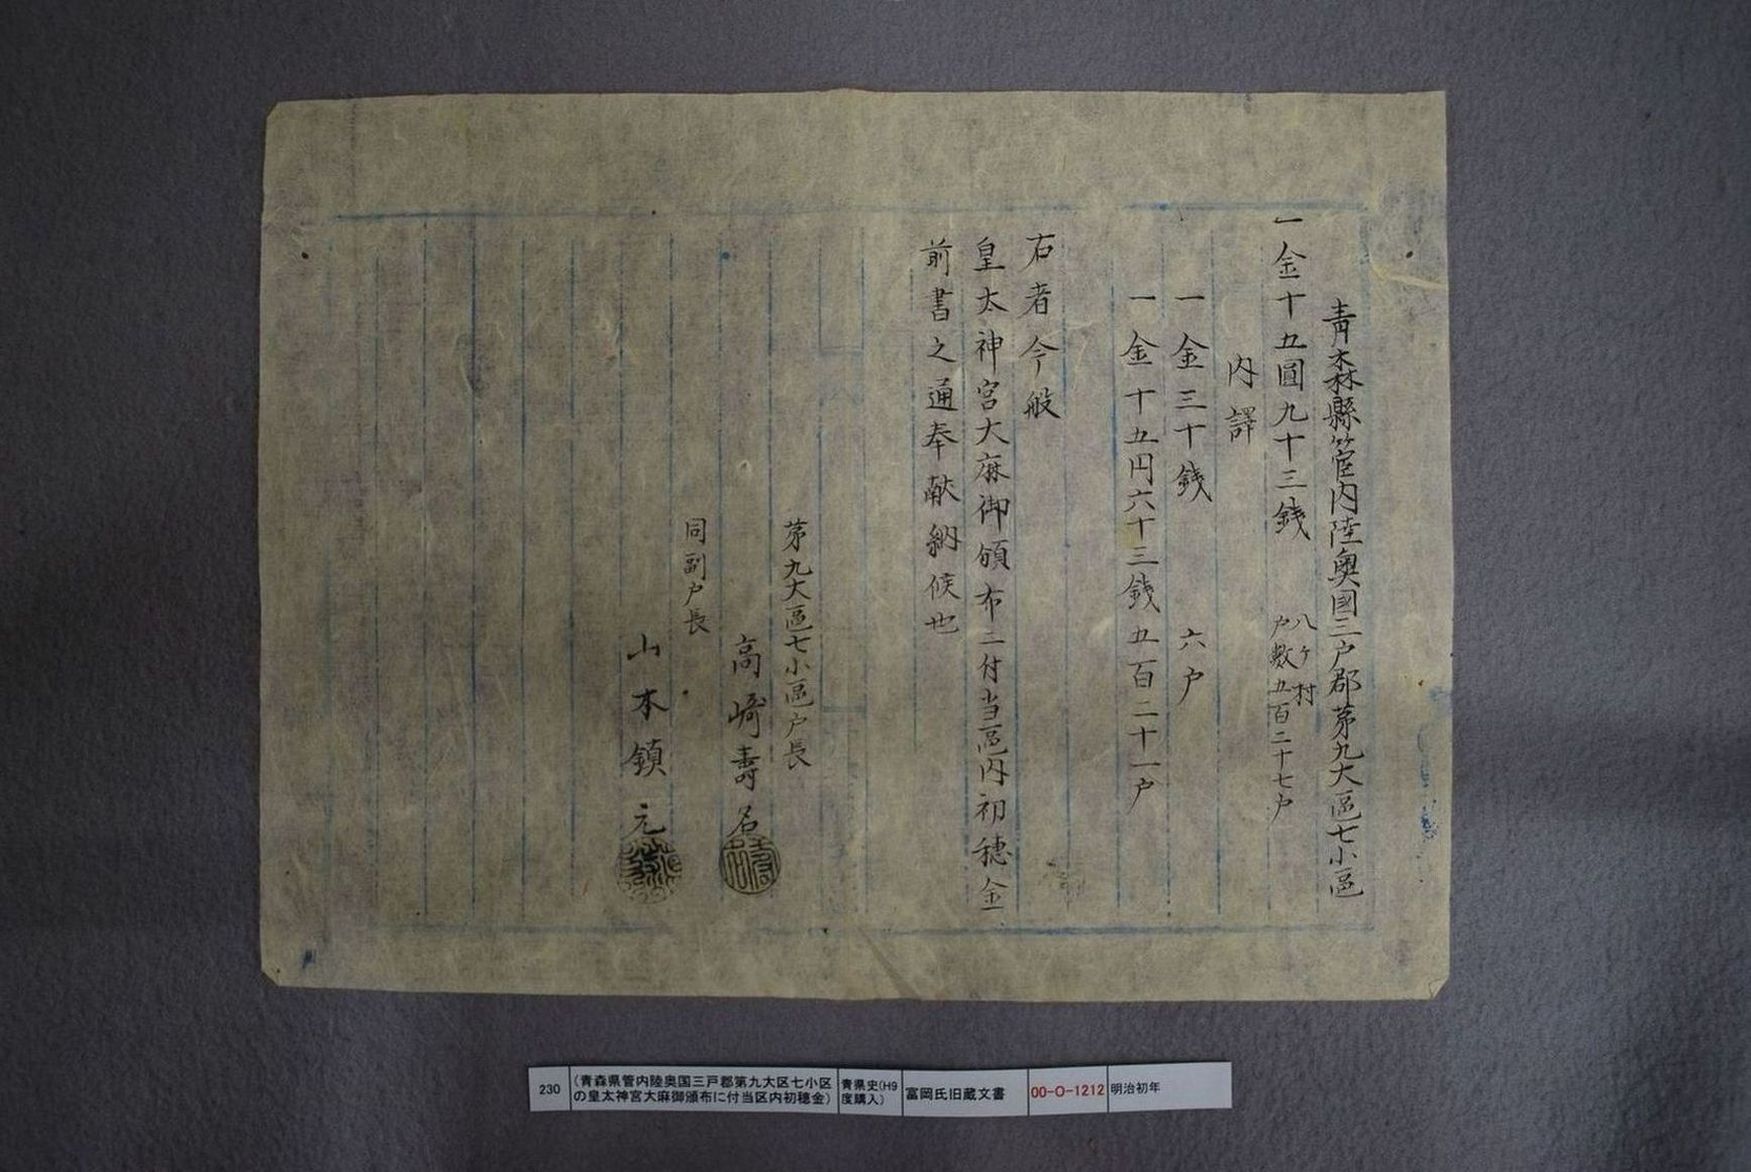 青森縣管内陸奥國三戸郡第九大區七小區
一金十五圓九十三銭
八ヶ村
戸數五百二十七戸
内譯
一金三十銭 六戸
一金十五円六十三銭五百二十一戸
右者今般
皇太神宮大麻御頒布ニ付当區内初穂金
前書之通奉献納候也
第九大區七小區戸長
高崎壽名
同副戸長
山本鎮元
230
(青森県管内陸奥国三戸郡第九大区七小区
の皇太神宮大麻御頒布に付当区内初穂金)
青県史(H9
度購入)
富岡氏旧蔵文書
00-O-1212
明治初年